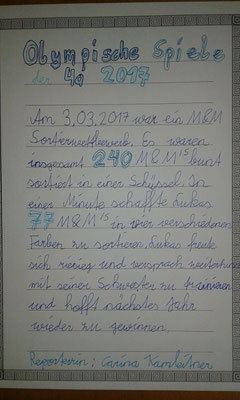 Olympische Spiele
der 4a 2017
Am 3.03.2017 war ein M&M
Sortierwettbewerb. Es waren
insgesamt 240 M&M'S bunt
sortiert in einer Schüssel. In
einer Minute schaffte Lukas
77 M&M'S in vier verschiedenen
Farben zu sortieren. Lukas freute
sich riesig und versprach weiterhin
mit seiner Schwester zu trainieren
und hofft nächstes Jahr
wieder zu gewinnen.
Reporterin: Carina Kamleitner